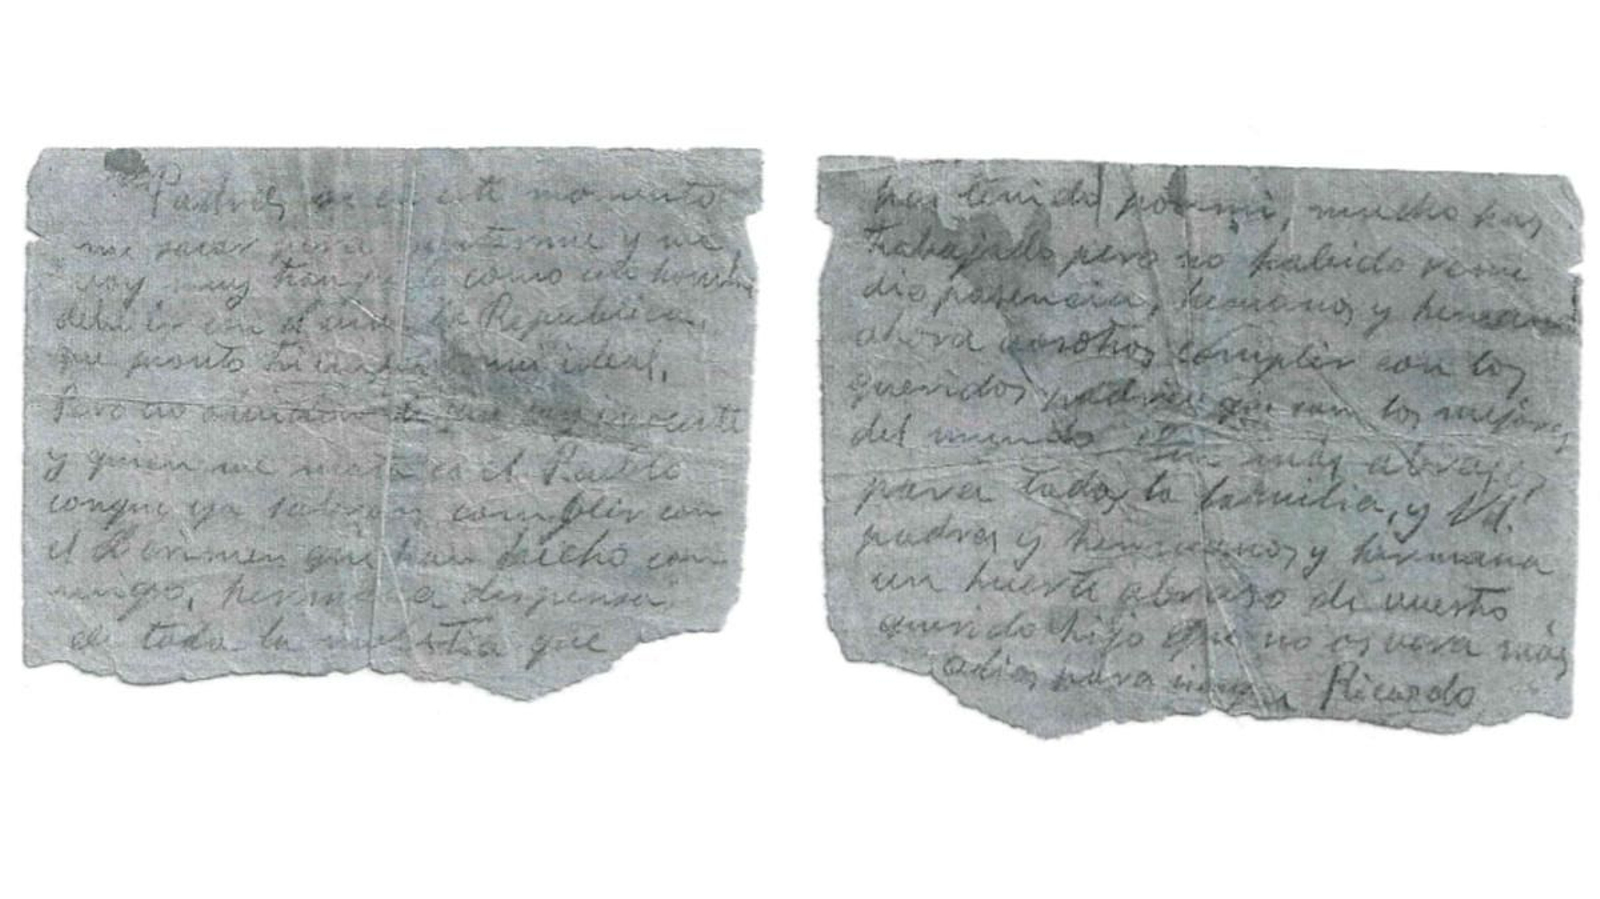 Padres en este momento
me sacar para y me
voy muy como los hombres
debe ir con el la Republica,
que pronto mi ideal,
Pero no de que soy inocente
y quien me mata es el Pueblo
conque ya sabran complir con
el Crimen que han hecho con
migo, hermana dispensa
de toda la molestia que
has tenido por mi, mucho has
trabajado pero no habido reme
dio pasencia, hermanos y hermana
ahora vosotros complir con los
queridos padres que son los mejores
del mundo mas abrazos
para toda la familia, y Vd.
padres y hermanos y hermana
un huerte abraso de vuestro
querido hijo que no os vera más
adios para siempre Ricardo